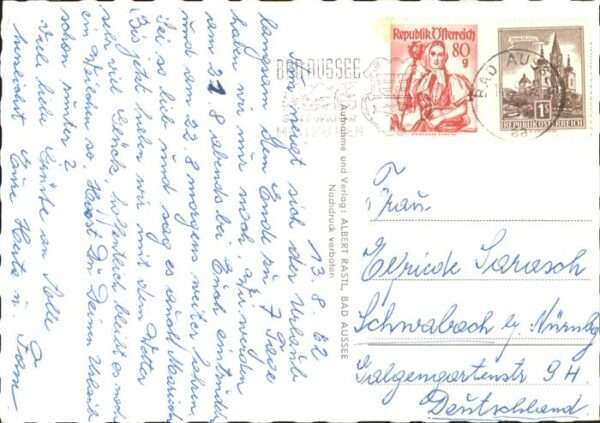 13.8.62
Nun neigt sich der Urlaub
langsam dem Ende zu, 7 Tage
haben wir nur noch. Wir werden
am 21 8 abends bei Euch eintrudeln
und am 22.8 morgens weiter fahren,
sei so lieb und sag es auch Marichen
Bis jetzt haben wir mit dem Wetter
sehr viel Glück, hoffentlich bleibt es noch
ein Weilchen so. Hast Du Deinen Urlaub
schon hinter
Viele liebe Grüße an Alle
Eure Herta u.
BAD AUSSEE
Republik Österreich
80 g
BAD AUSSEE
1S
REPUBLIK ÖSTERREICH
Aufnahme und Verlag: ALBERT RASTL, BAD AUSSEE
Nachdruck verboten
Frau
Elfriede Sarasch
Schwabach b/ Nürnbg
Galgengartenstr 94
Deutschland